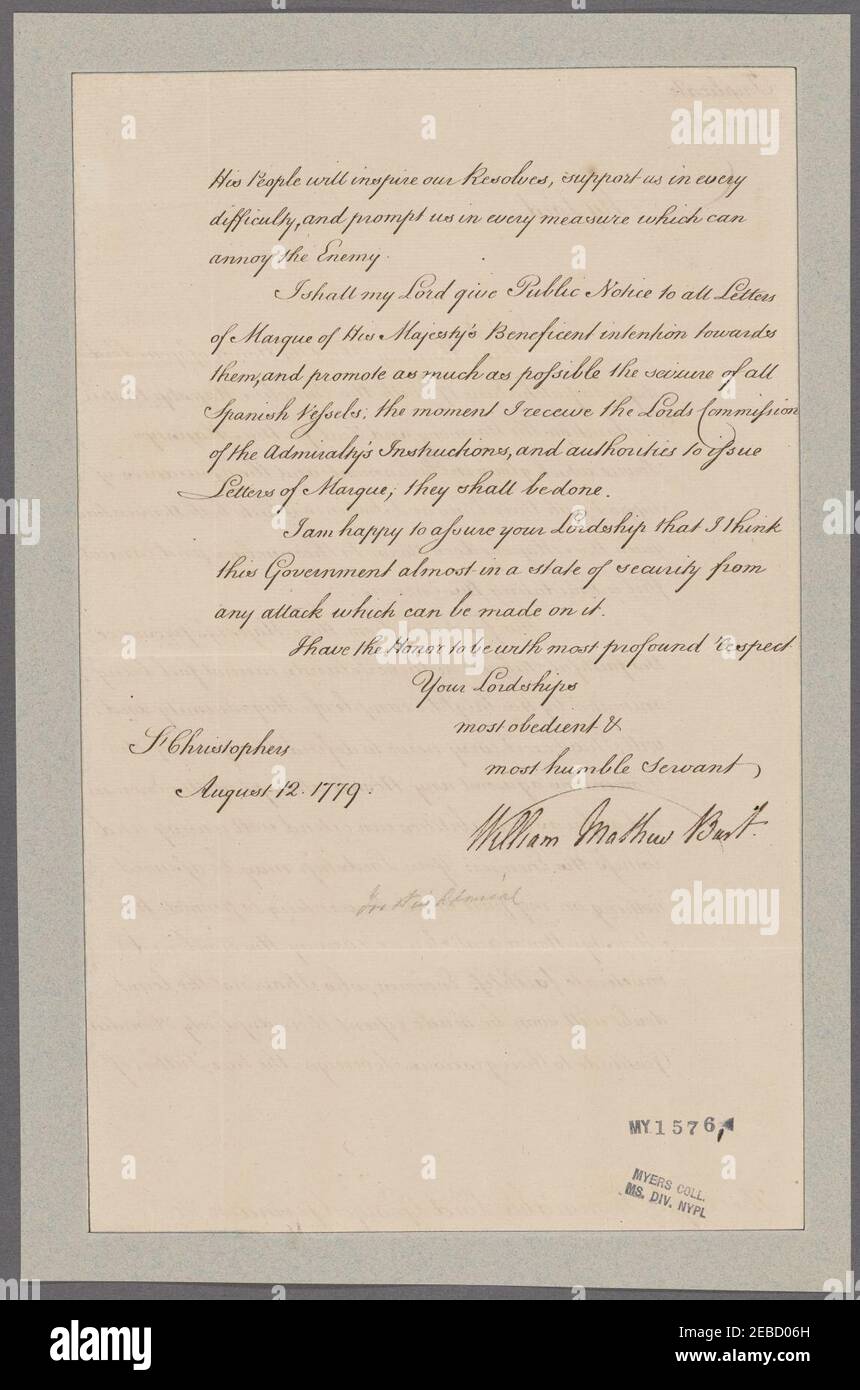 His People will inspire our Resolves, support us in every
difficulty, and prompt us in every measure which can
annoy the Enemy.
I shall my Lord give Public Notice to all Letters
of Marque of His Majesty's Beneficent intention towards
them, and promote as much as poſsible the seizure of all
Spanish Veſsels; the moment I receive the Lords Commiſsion
of the Admiralty's Instructions, and authorities to iſsue
Letters of Marque, they shall be done.
I am happy to aſsure your Lordship that I think
this Government almost in a state of security from
any attack which can be made on it.
I have the Honor to be with most profound respect
Your Lordships
most obedient &
most humble Servant
St Christophers
August 12. 1779.
William Mathew Burt.
MY 1576
MYERS COLL.
MS. DIV. NYPL
alamy
Image ID: 2EBD06H
www.alamy.com